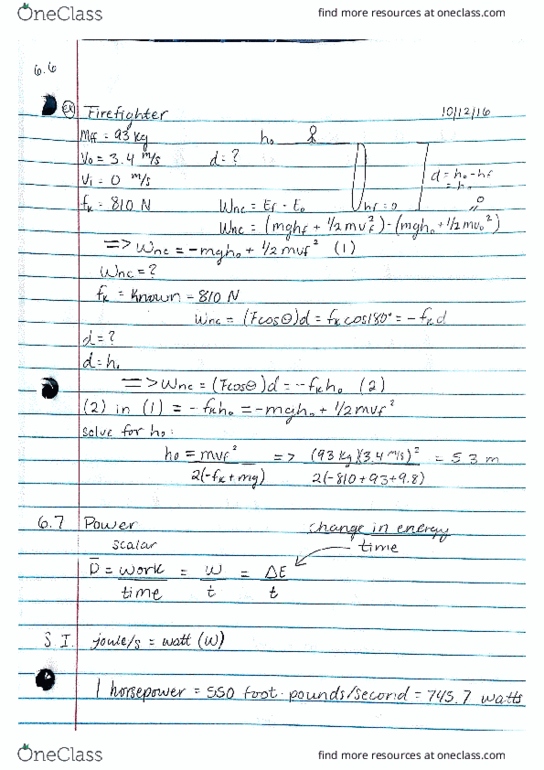 OneClass find more resources at oneclass.com
6.6
Ex Firefighter 10/12/16
mff = 93 kg h₀
V₀ = 3.4 m/s d = ?
V₁ = 0 m/s d = h₀ - hf
= h₀
fk = 810 N Wnc = Ef - E₀ hf = 0
Wnc = (mghf + 1/2 mvf²) - (mgh₀ + 1/2 mv₀²)
=> Wnc = -mgh₀ + 1/2 mvf² (1)
Wnc = ?
fk = Known - 810 N
Wnc = (Fcosθ)d = fk cos180° = -fkd
d = ?
d = h₀
=> Wnc = (Fcosθ)d = -fkh₀ (2)
(2) in (1) = -fkh₀ = -mgh₀ + 1/2 mvf²
solve for h₀:
h₀ = mvf² => (93 kg)(3.4 m/s)² = 5.3 m
2(-fk + mg) 2(-810 + 93 + 9.8)
6.7 Power change in energy
scalar time
P̄ = work = W = ΔE
time t t
S.I. joule/s = watt (W)
1 horsepower = 550 foot·pounds/second = 745.7 watts
OneClass find more resources at oneclass.com